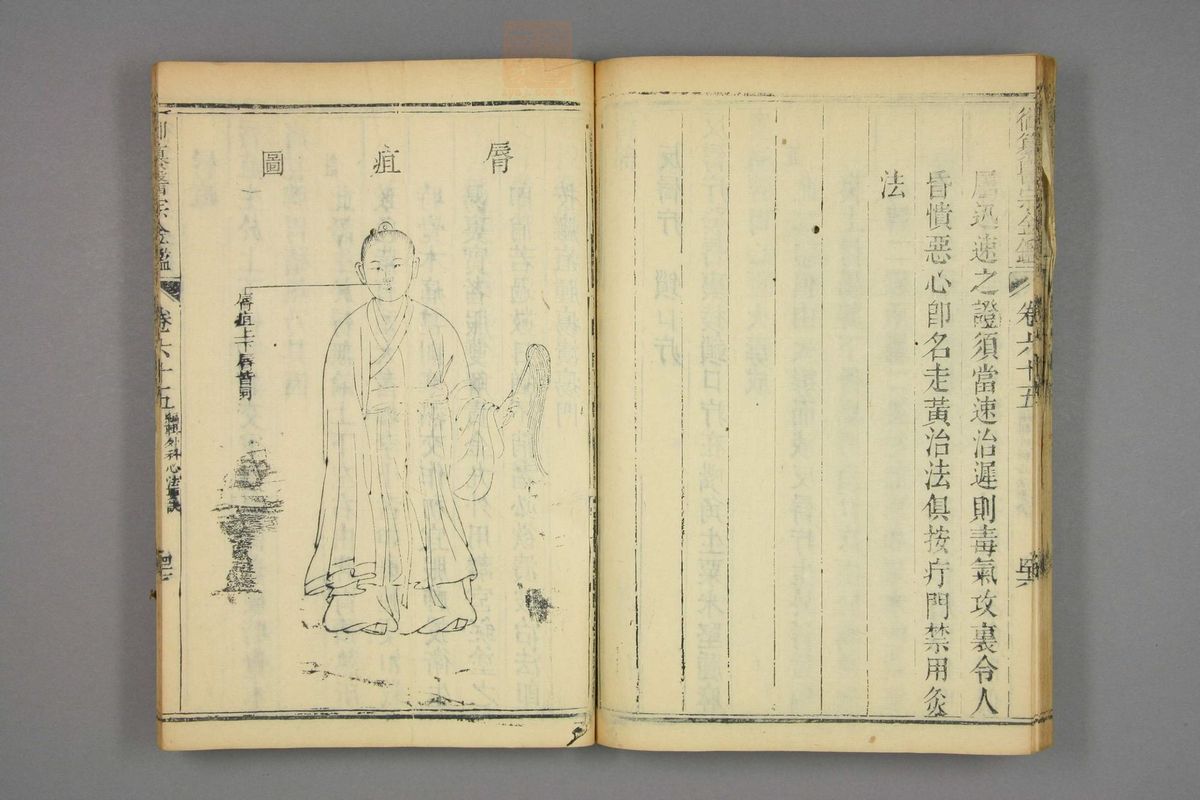 御纂醫宗金鑑
卷六十五
屬迅速之證須當速治遲則毒氣攻裏令人
昏憒惡心卽名走黃治法俱按疔門禁用灸
法
脣疽圖
脣疽上下脣皆同
御纂醫宗金鑑
卷六十五
編輯外科心法要訣